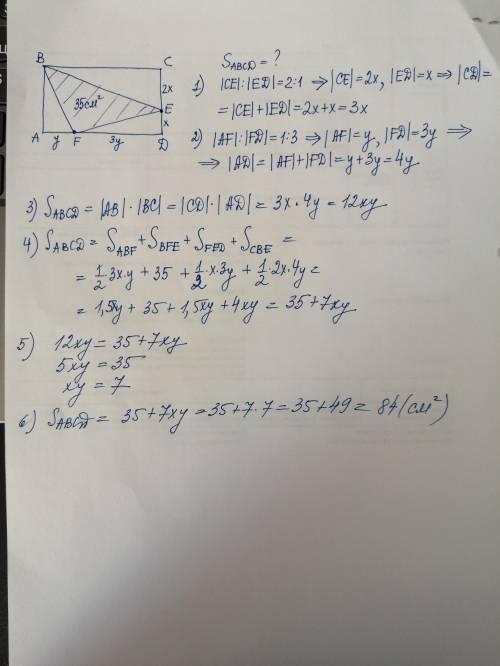 B
C
2x
35см²
E
x
A
y
F
3y
D
S_ABCD = ?
1) |CE|:|ED|=2:1 ⇒ |CE|=2x, |ED|=x ⇒ |CD|=
= |CE|+|ED|=2x+x=3x
2) |AF|:|FD|=1:3 ⇒ |AF|=y, |FD|=3y ⇒
⇒ |AD|=|AF|+|FD|=y+3y=4y
3) S_ABCD = |AB|·|BC|=|CD|·|AD|=3x·4y=12xy
4) S_ABCD = S_ABF + S_BFE + S_FED + S_CBE =
= 1/2·3x·y + 35 + 1/2·x·3y + 1/2·2x·4y=
= 1,5xy + 35 + 1,5xy + 4xy = 35+7xy
5) 12xy = 35+7xy
5xy = 35
xy = 7
6) S_ABCD = 35+7xy = 35+7·7 = 35+49 = 84 (см²)